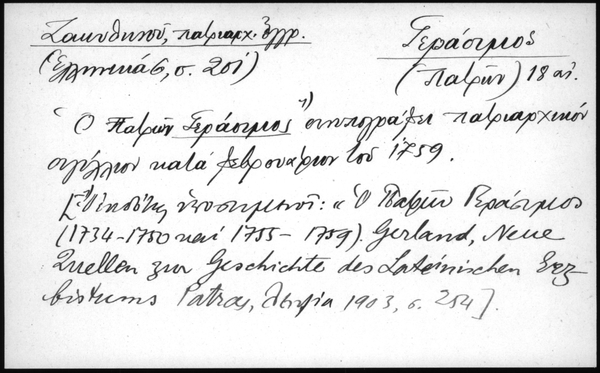 Ζακυθηνοῦ, πατριαρχ. ἔγγρ.
Γεράσιμος
(Ἑλληνικά 6, σ. 201)
(Πατρῶν) 18 αἰ.
"Ὁ Πατρῶν Γεράσιμος" 1) συνυπογράφει πατριαρχικόν
σιγίλλιον κατά φεβρουάριον τοῦ 1759.
[1) Ὁ ἐκδότης ὑποσημειοῖ: «Ὁ Πατρῶν Γεράσιμος
(1734-1750 καί 1755-1759). Gerland, Neue
Quellen zur Geschichte des Lateinischen Erz-
bistums Patras, Λειψία 1903, σ. 254].